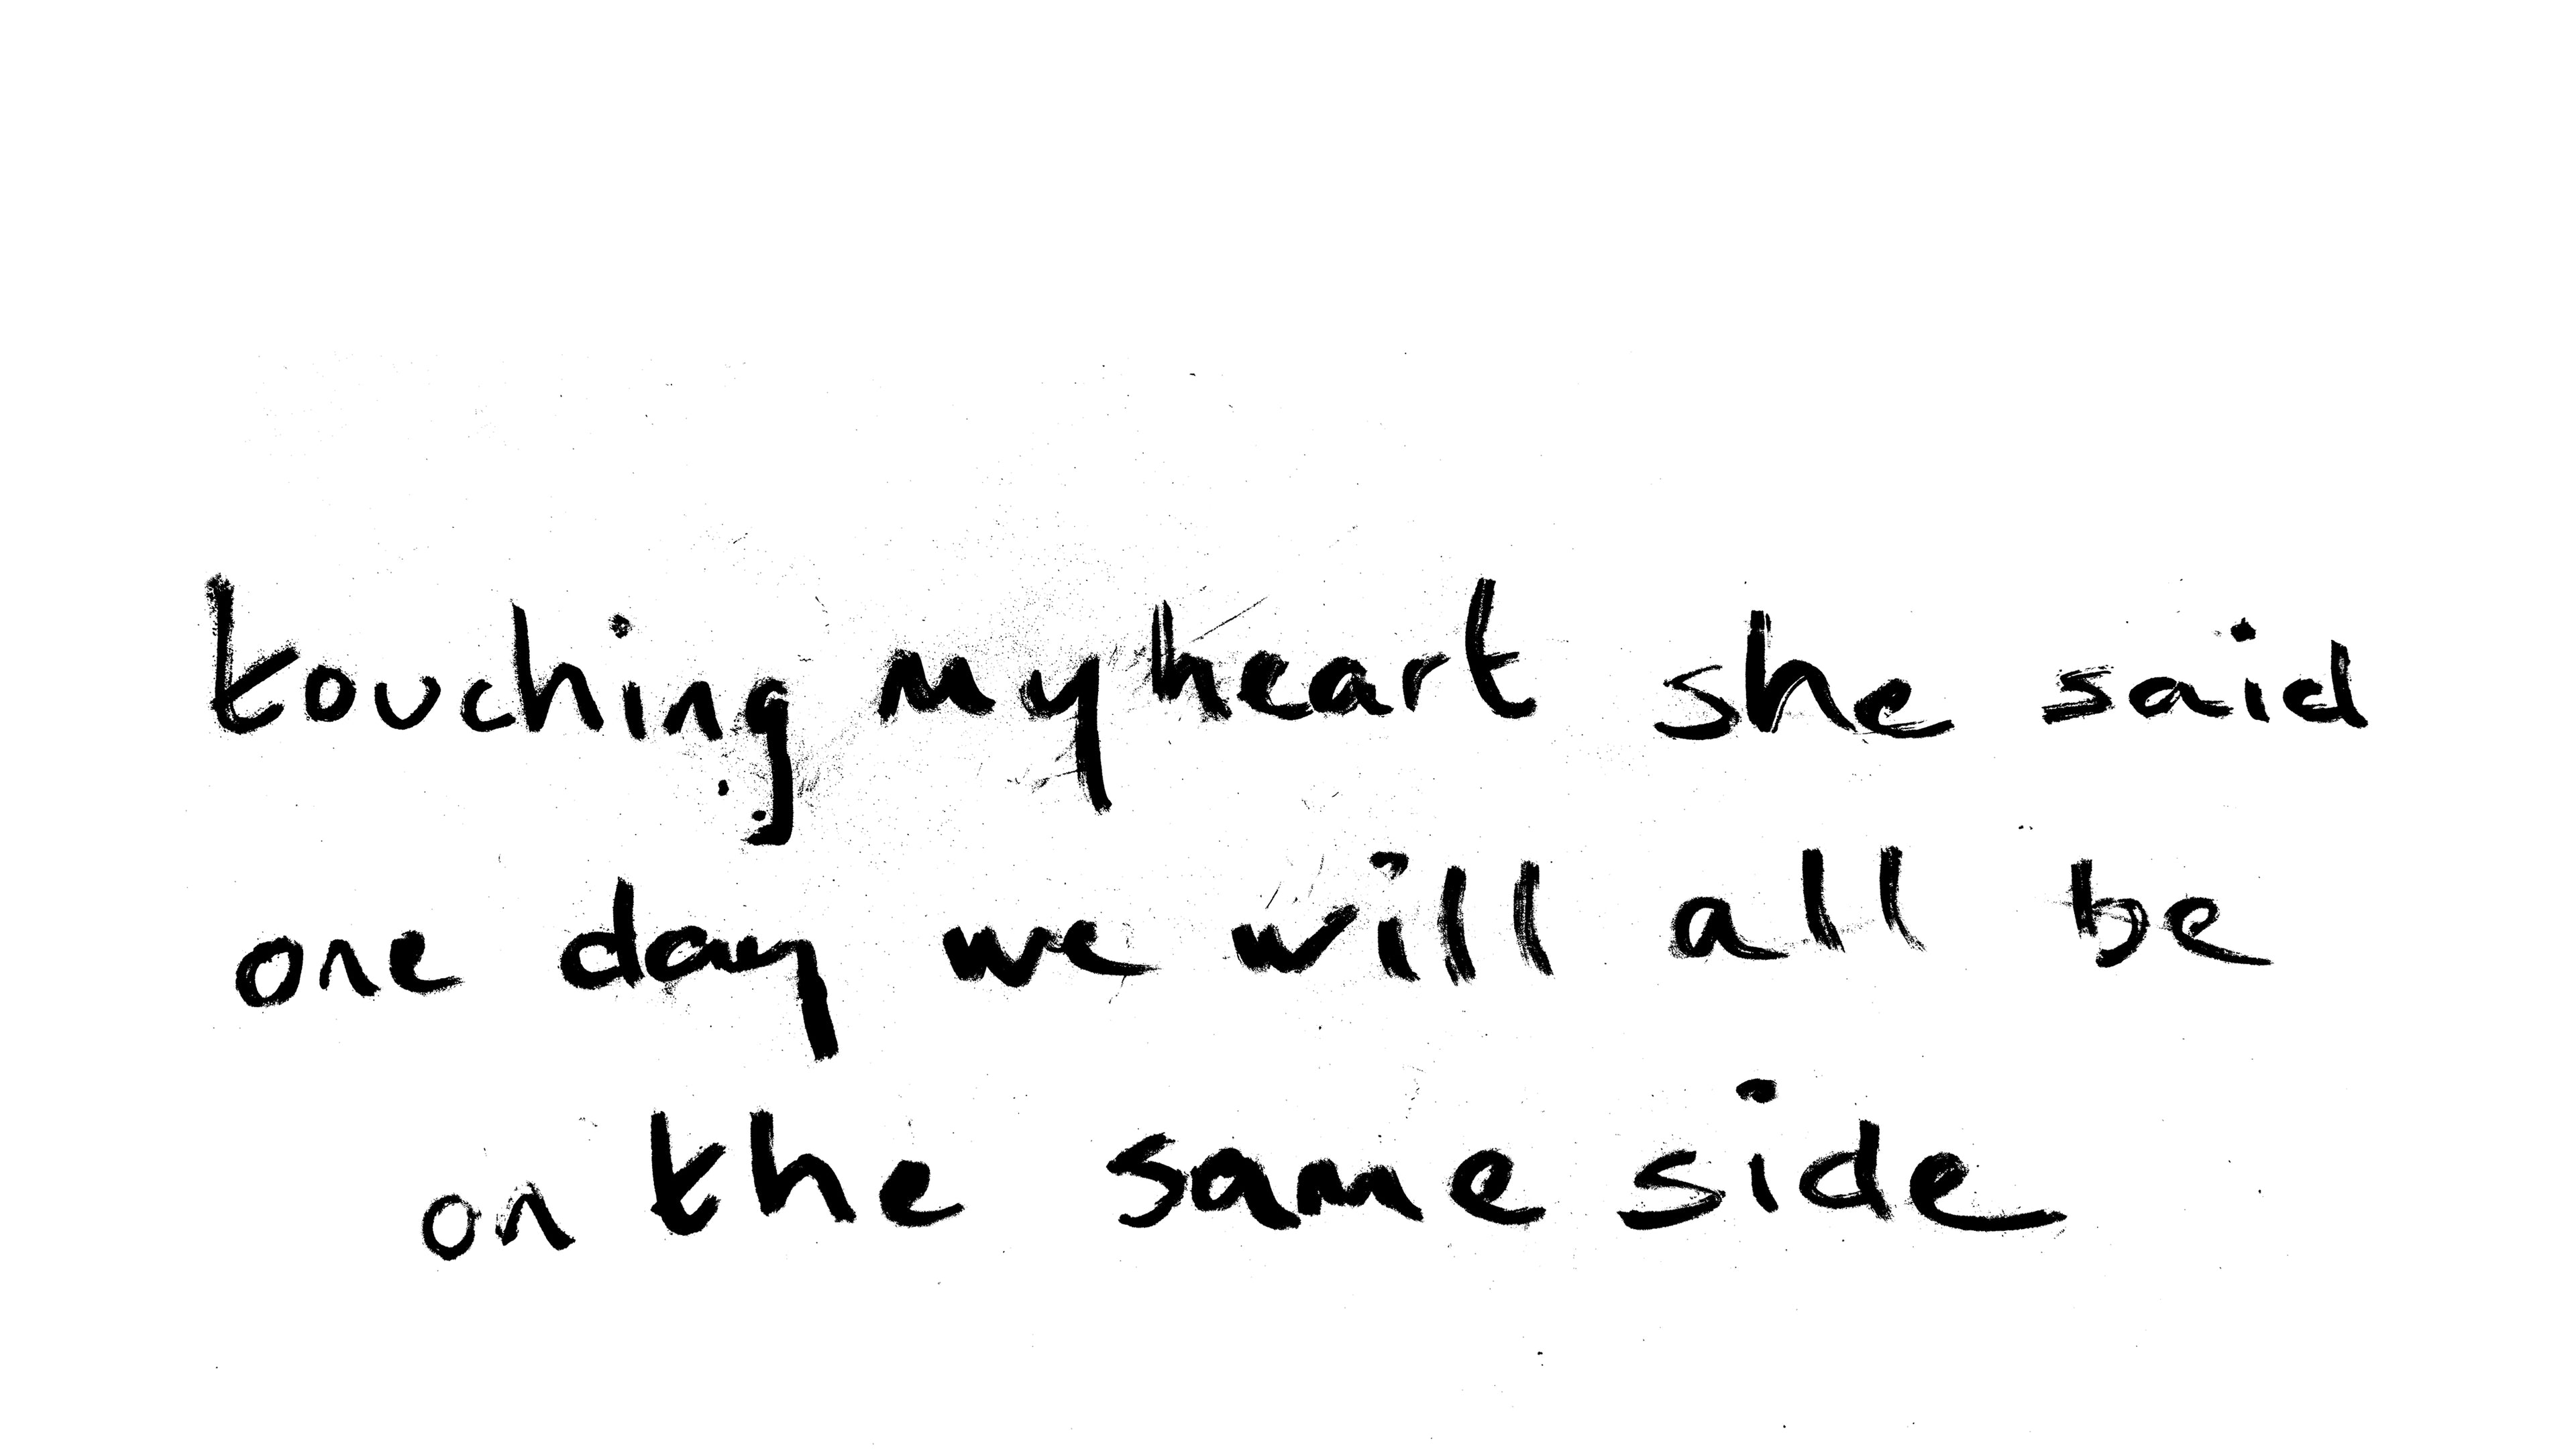 touching my heart she said
one day we will all be
on the same side